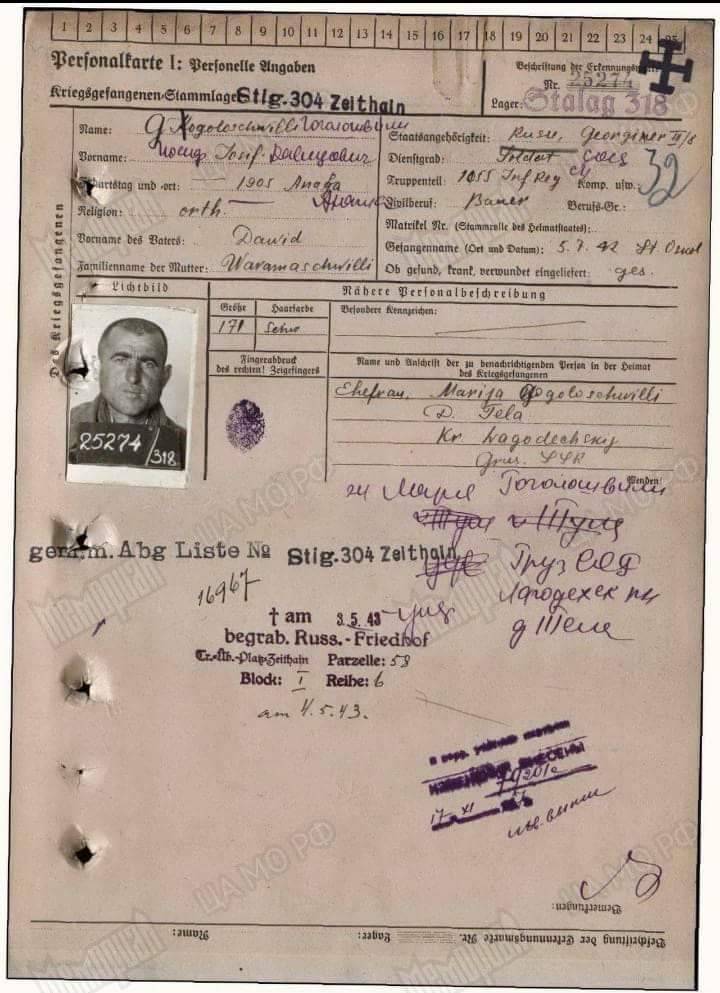 1 2 3 4 5 6 7 8 9 10 11 12 13 14 15 16 17 18 19 20 21 22 23 24 25
Personalkarte I: Personelle Angaben
Beschriftung der Erkennungsmarke
Nr. 25274
Kriegsgefangenen-Stammlager: Stlg. 304 Zeithain
Lager: Stalag 318
Des Kriegsgefangenen
Name: Gogoloschwilli Гоголошвили
Vorname: Иосиф Josif Давидович
Geburtstag und -ort: 1905 Anaga
Анага
Religion: orth.
Vorname des Vaters: Dawid
Familienname der Mutter: Waramaschwilli
Staatsangehörigkeit: Russe, Georgier
Dienstgrad: Soldat
Truppenteil: 1055 Inf Reg Komp. usw.:
32
Zivilberuf: Bauer Berufs-Gr.:
Matrikel Nr. (Stammrolle des Heimatstaates):
Gefangennahme (Ort und Datum): 5.7.42 St Oskol
Ob gesund, krank, verwundet eingeliefert: ges.
Lichtbild
Nähere Personalbeschreibung
Größe Haarfarbe Besondere Kennzeichen:
171 Schw
Fingerabdruck
des rechten! Zeigefingers
Name und Anschrift der zu benachrichtigenden Person in der Heimat
des Kriegsgefangenen
25274
318
Ehefrau, Marija Gogoloschwilli
D. Tela
Kr. Lagodechskij
Grus. SSR
Wenden!
Мария Гоголошвили
Груз ССР
д Тела
gem. Abg Liste No Stlg. 304 Zeithain
16967
† am 3.5.43
begrab. Russ.-Friedhof
Tr.-Üb.-Platz-Zeithain Parzelle: 58
Block: I Reihe: 6
am 4.5.43.
ИЗМЕНЕНИЯ ВНЕСЕНЫ
17 XI
Bemerkungen:
Beschriftung der Erkennungsmarke Nr. Lager: Name:
МЕМОРИАЛ
ЦАМО РФ